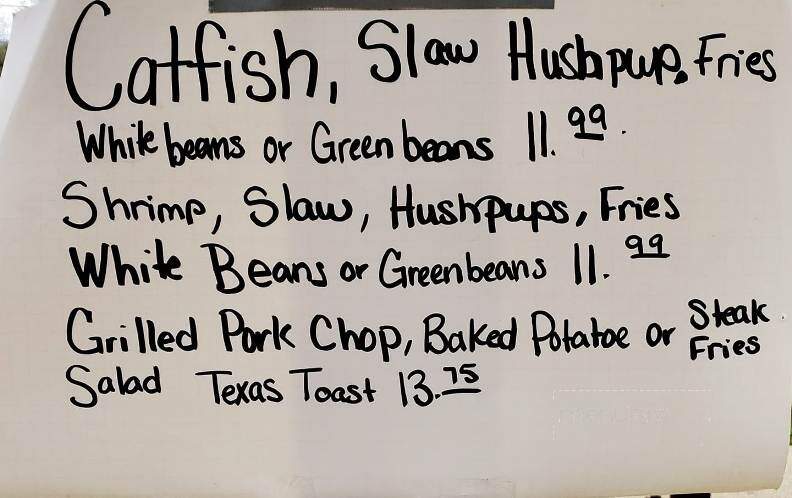 Catfish, Slaw Hushpup, Fries
White beans or Green beans 11.99.
Shrimp, Slaw, Hushpups, Fries
White Beans or Greenbeans 11.99
Grilled Pork Chop, Baked Potatoe or Steak Fries
Salad Texas Toast 13.75